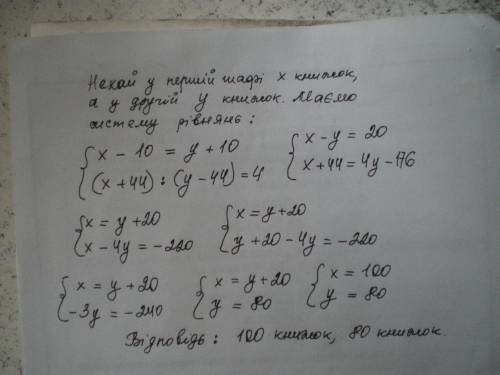 Нехай у першій шафі x книжок,
а у другій y книжок. Маємо
систему рівнянь:
{ x - 10 = y + 10
{ (x + 44) : (y - 44) = 4
{ x - y = 20
{ x + 44 = 4y - 176
{ x = y + 20
{ x - 4y = -220
{ x = y + 20
{ y + 20 - 4y = -220
{ x = y + 20
{ -3y = -240
{ x = y + 20
{ y = 80
{ x = 100
{ y = 80
Відповідь: 100 книжок, 80 книжок.